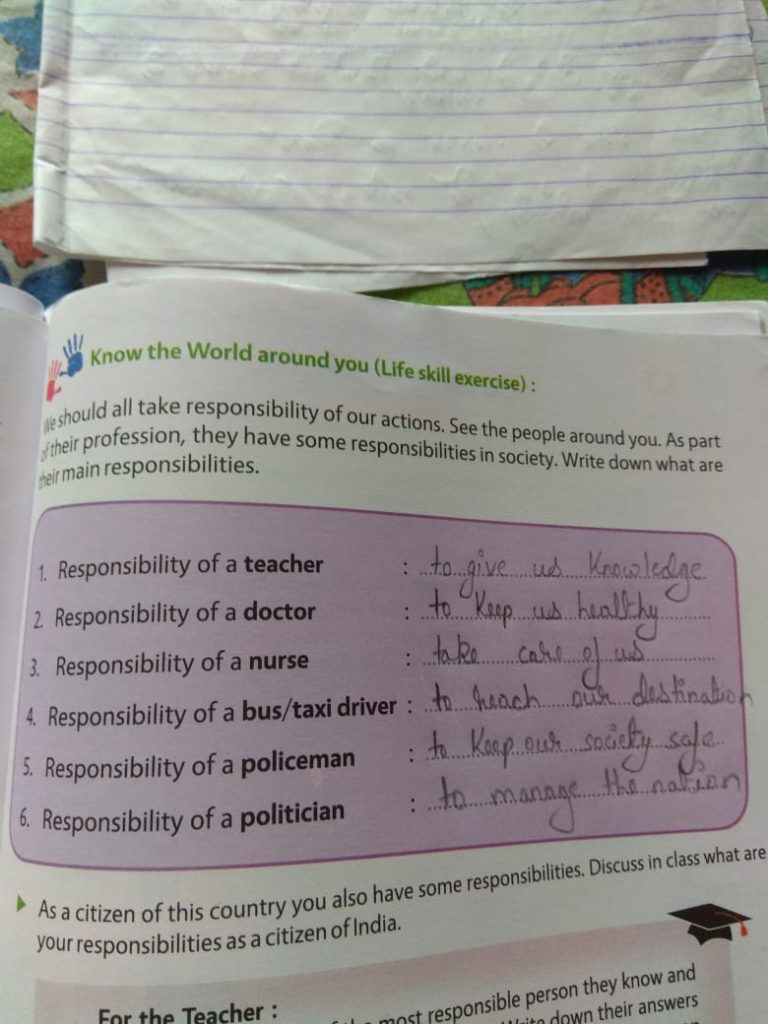 Know the World around you (Life skill exercise) :
We should all take responsibility of our actions. See the people around you. As part
of their profession, they have some responsibilities in society. Write down what are
their main responsibilities.
1. Responsibility of a teacher : to give us Knowledge
2. Responsibility of a doctor : to Keep us healthy
3. Responsibility of a nurse : take care of us
4. Responsibility of a bus/taxi driver : to reach our destination
5. Responsibility of a policeman : to Keep our society safe
6. Responsibility of a politician : to manage the nation
As a citizen of this country you also have some responsibilities. Discuss in class what are
your responsibilities as a citizen of India.
For the Teacher :
most responsible person they know and
Write down their answers